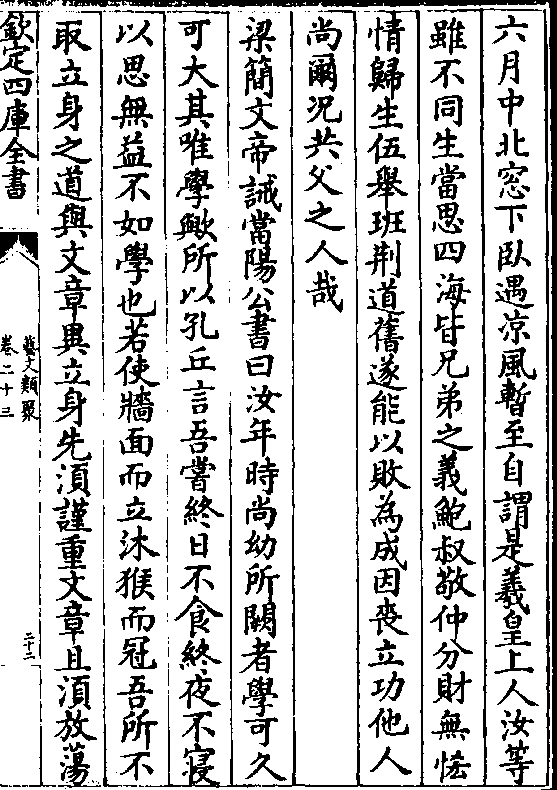 六月中北窓下臥遇凉風暫至自謂是羲皇上人汝等
雖不同生當思四海皆兄弟之義鮑叔敬仲分財無恡
情歸生伍舉班荆道舊遂能以敗為成因喪立功他人
尚爾况共父之人哉
梁簡文帝誡當陽公書曰汝年時尚幼所闕者學可久
可大其唯學歟所以孔丘言吾嘗終日不食終夜不寝
以思無益不如學也若使牆面而立沐猴而冠吾所不
取立身之道與文章異立身先湏謹重文章且湏放蕩
欽定四庫全書
藝文類聚
卷二十三
二十二